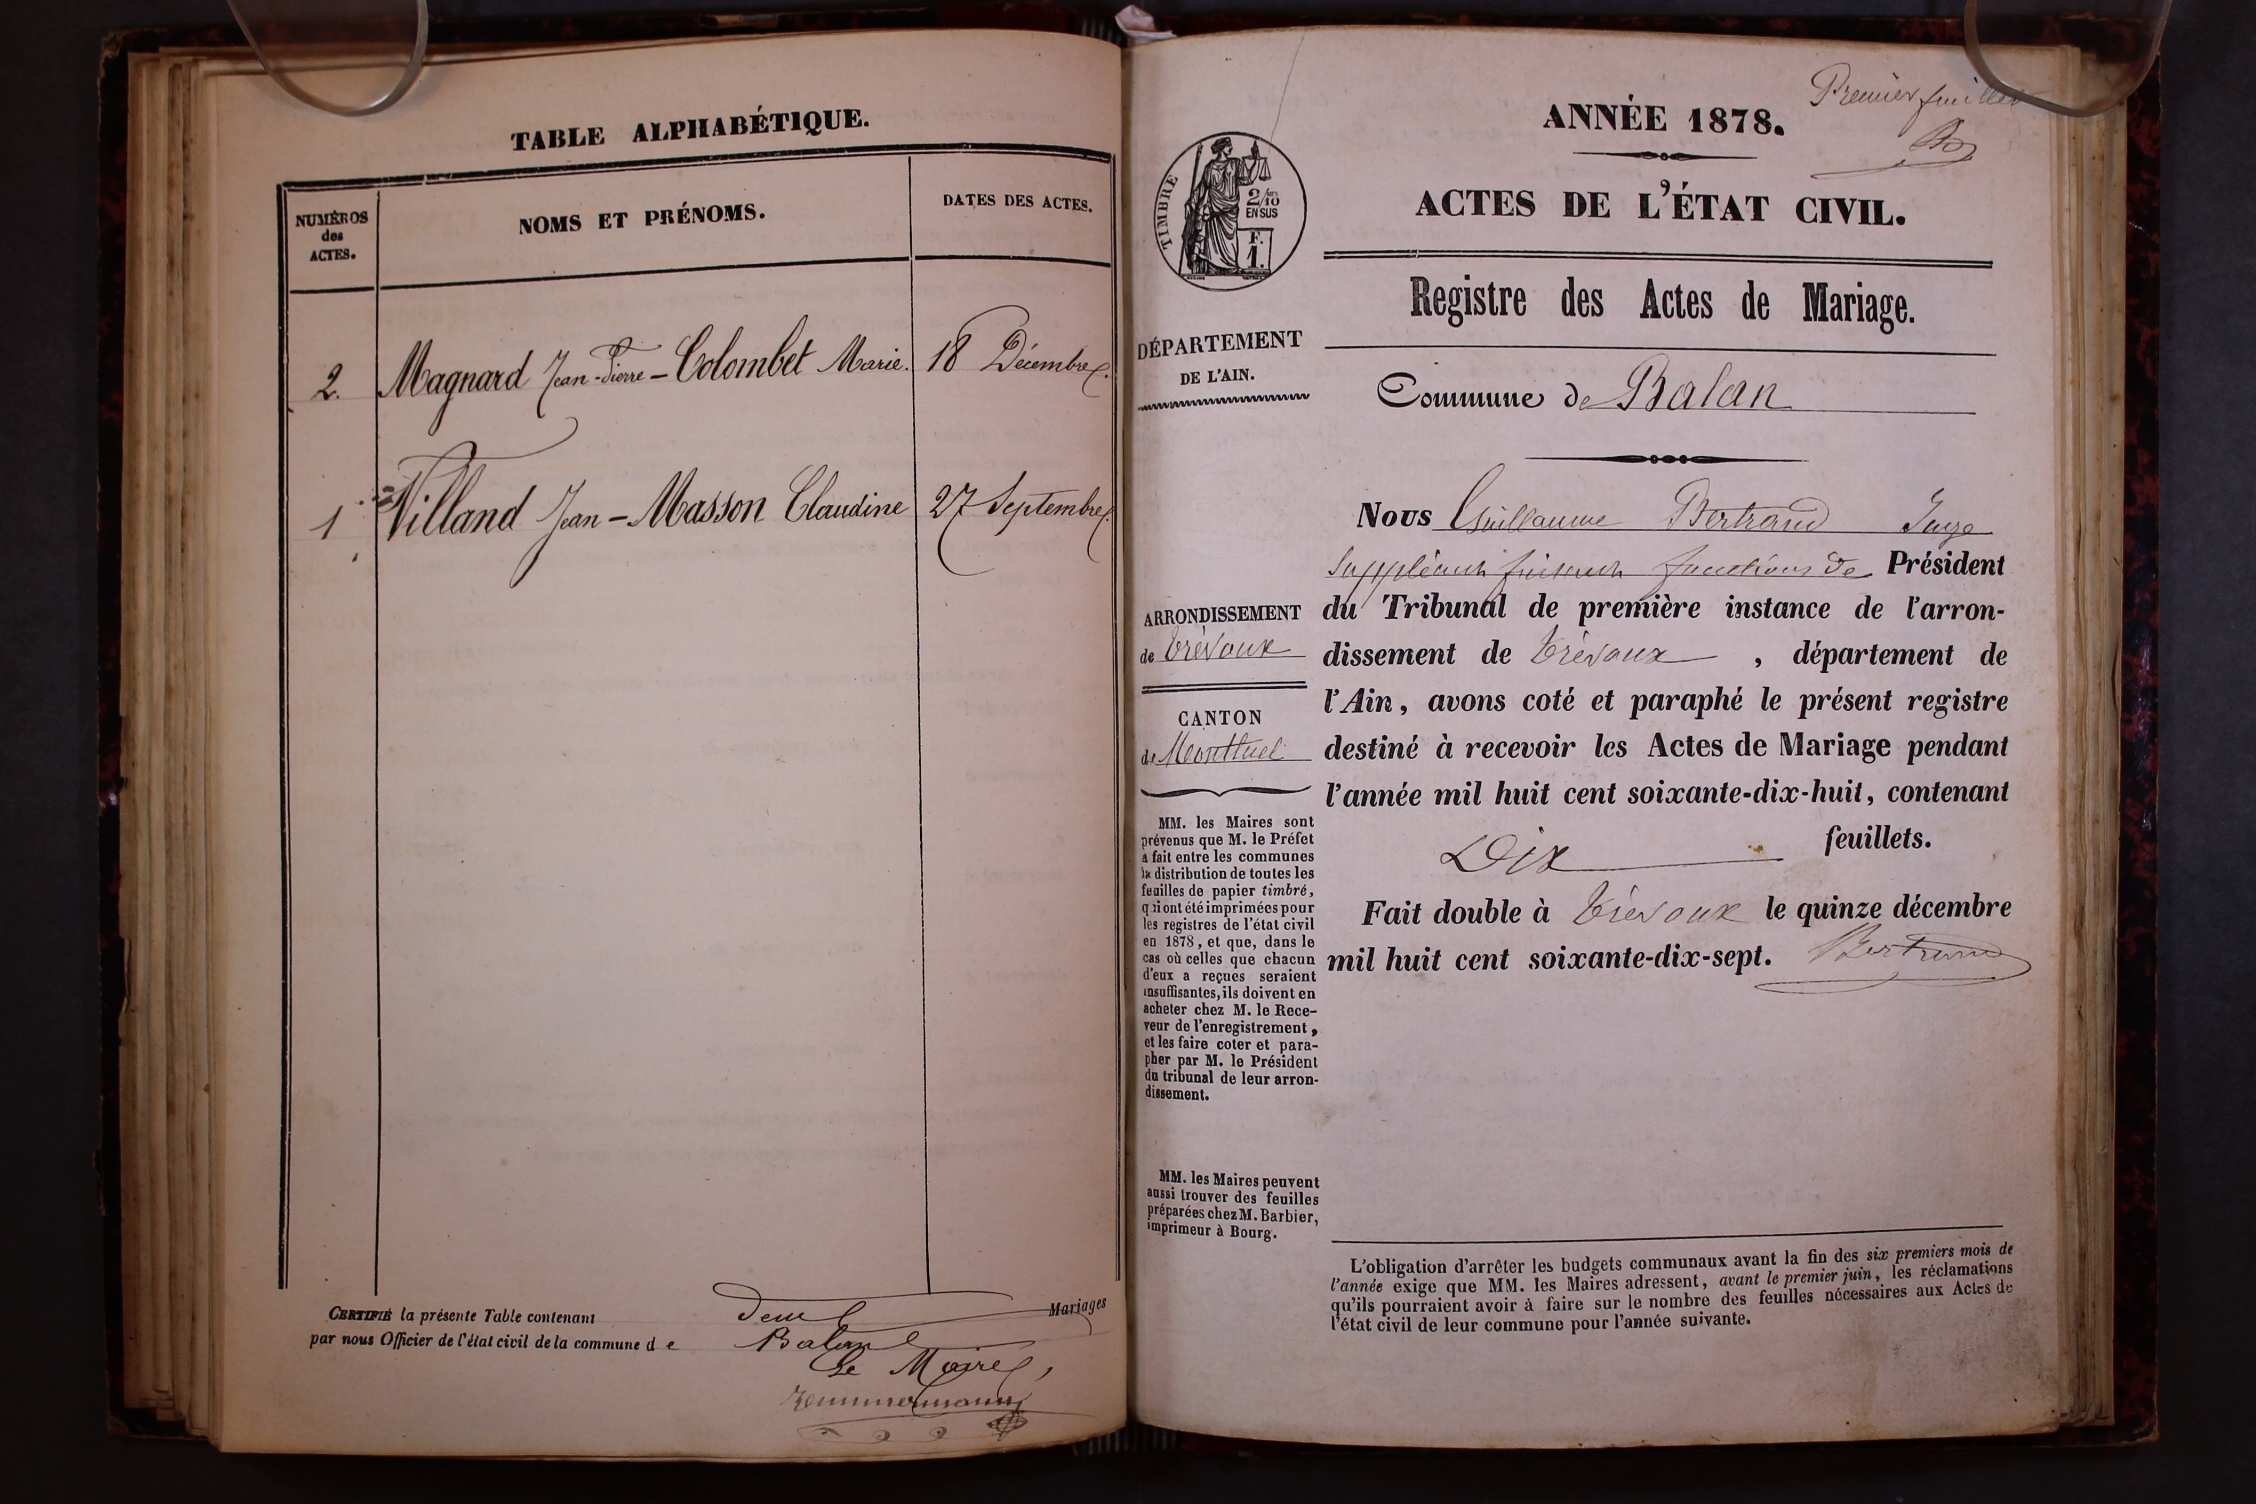 TABLE ALPHABÉTIQUE.
NUMÉROS
des
ACTES.
NOMS ET PRÉNOMS.
DATES DES ACTES.
2. Magnard Jean-Pierre – Colombet Marie. 18 Décembre.
1 Villand Jean – Masson Claudine 27 Septembre.
CERTIFIÉ la présente Table contenant deux Mariages
par nous Officier de l'état civil de la commune de Balan
Le Maire,
Premier feuillet
ANNÉE 1878.
ACTES DE L'ÉTAT CIVIL.
TIMBRE
2/10
EN SUS
F.
1.
Registre des Actes de Mariage.
DÉPARTEMENT
DE L'AIN.
Commune de Balan
ARRONDISSEMENT
de Trévoux
CANTON
de Montluel
MM. les Maires sont
prévenus que M. le Préfet
a fait entre les communes
la distribution de toutes les
feuilles de papier timbré,
qui ont été imprimées pour
les registres de l'état civil
en 1878, et que, dans le
cas où celles que chacun
d'eux a reçues seraient
insuffisantes, ils doivent en
acheter chez M. le Rece-
veur de l'enregistrement,
et les faire coter et para-
pher par M. le Président
du tribunal de leur arron-
dissement.
MM. les Maires peuvent
aussi trouver des feuilles
préparées chez M. Barbier,
imprimeur à Bourg.
Nous Guillaume Bertrand Juge
Suppléant faisant fonctions de Président
du Tribunal de première instance de l'arron-
dissement de Trévoux, département de
l'Ain, avons coté et paraphé le présent registre
destiné à recevoir les Actes de Mariage pendant
l'année mil huit cent soixante-dix-huit, contenant
Dix feuillets.
Fait double à Trévoux le quinze décembre
mil huit cent soixante-dix-sept. Bertrand
L'obligation d'arrêter les budgets communaux avant la fin des six premiers mois de
l'année exige que MM. les Maires adressent, avant le premier juin, les réclamations
qu'ils pourraient avoir à faire sur le nombre des feuilles nécessaires aux Actes de
l'état civil de leur commune pour l'année suivante.